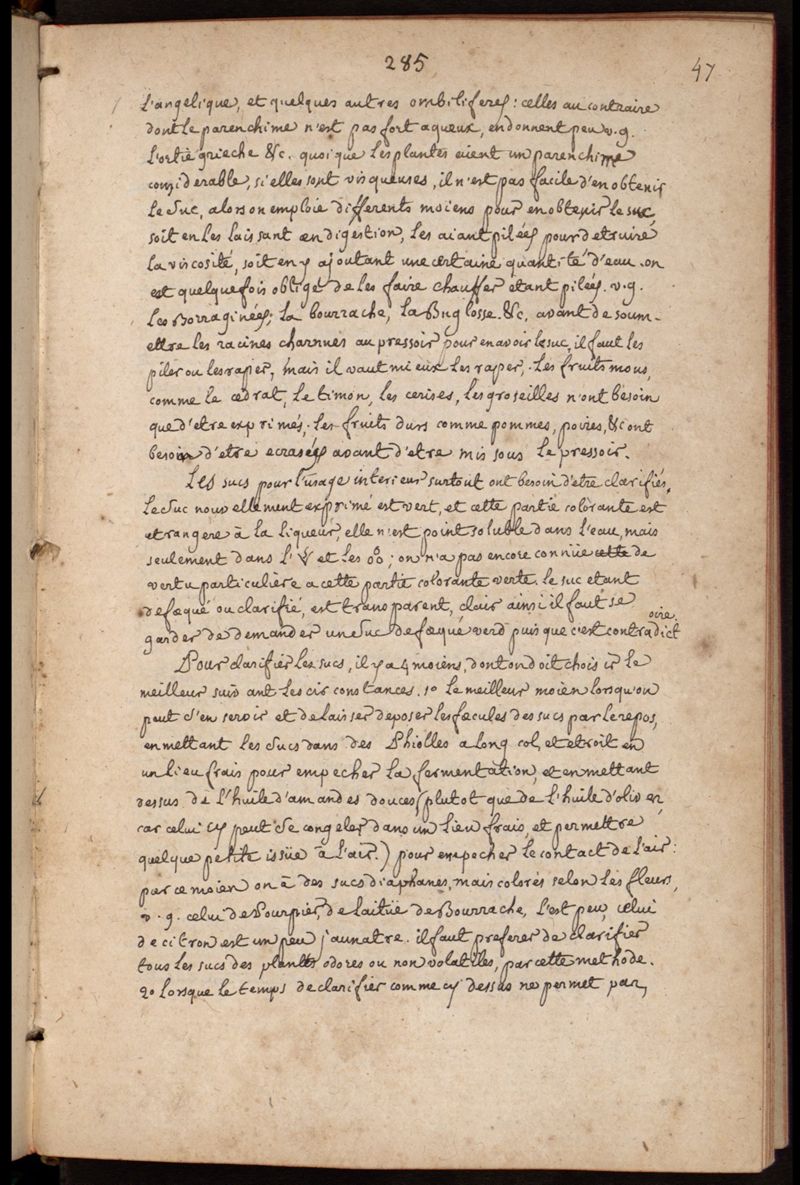 285
47
L'angelique, et quelques autres ombiliferes: celles au contraire
dont le parenchime n'est pas fort aqueux, en donnent peu v.g.
L'ortie grieche &c. quoique les plantes eient un parenchime
considerable, si elles sont visqueuses, il n'est pas facile d'en obtenir
le suc, alors on emploie differents moiens pour en obtenir le suc,
soit en les laissant en digestion, les aiant pilées pour detruire
la viscosité, soit en y ajoutant une certaine quantité d'eau. on
est quelquefois obligé de les faire chauffer etant pilées. v.g.
Les Borraginées; La bourrache, La Buglosse. &c. avant de soum-
ettre les racines charnues au pressoir pour en avoir le suc, il faut les
piler ou les raper, mais il vaut mieux les raper, . Les fruits mous,
comme le cedrat, Le limon, les cerises, les groseilles n'ont besoin
que d'etre exprimés. Les fruits durs comme pommes, poires, &c ont
besoin d'etre ecrasées avant d'etre mis sous le pressoir.
Les sucs pour l'usage interieur surtout ont besoin d'etre clarifiés.
Le Suc nouvellement exprimé est vert, et cette partie colorante est
etrangere à la liqueur, elle n'est point soluble dans l'eau, mais
seulement dans l' et les ; on n'a pas encore connüe cette de
vertu particulière a cette partie colorante verte. le suc etant
defæqué ou clarifié, est transparent, clair ainsi il faut se
garder de demander un Suc defæqué verd puisque c'est contradict
oire.
Pour clarifier les sucs, il y a 4 moiens, dont on doit choisir le
meilleur suivant les circonstances. 1o le meilleur moien lorsqu'on
peut s'en servir et de laisser deposer les fæcules des sucs par le repos,
en mettant les Sucs dans des Phiolles a long col, et etroit en
un lieu frais pour empecher la fermentation, et en mettant
dessus de l'huile d'amandes douces (plutot que de l'huile d'oliven
car celui cy peut se congeler dans un lieu frais, et permettre
quelque petite issüe à l'air.) pour empecher le contact de l'air:
par ce moien on à des sucs diaphanes, mais colorés selon les fleurs,
v.g. celui de Pourpier, de laitüe de Bourrache, l'est peu, celui
de citron est un peu jaunatre. il faut preferer de clarifier
tous les sucs des plantes odores ou non volatiles, par cette methode.
2o lorsque le temps de clarifier comme cy dessus ne permet pas,